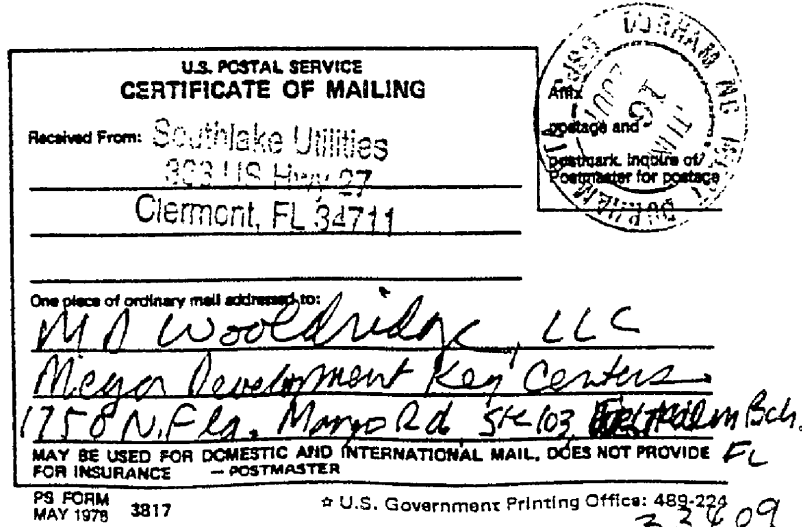 U.S. POSTAL SERVICE
CERTIFICATE OF MAILING
Received From: Southlake Utilities
303 US Hwy 27
Clermont, FL 34711
One piece of ordinary mail addressed to:
M D Wooldridge, LLC
Development Key Centers
1758 N. Fla. Mango Rd Ste 103, Palm Bch,
MAY BE USED FOR DOMESTIC AND INTERNATIONAL MAIL, DOES NOT PROVIDE FL
FOR INSURANCE — POSTMASTER
PS FORM
MAY 1978 3817
☆ U.S. Government Printing Office: 489-224
33409
Affix
postage and
postmark. Inquire of
Postmaster for postage
DURHAM NC